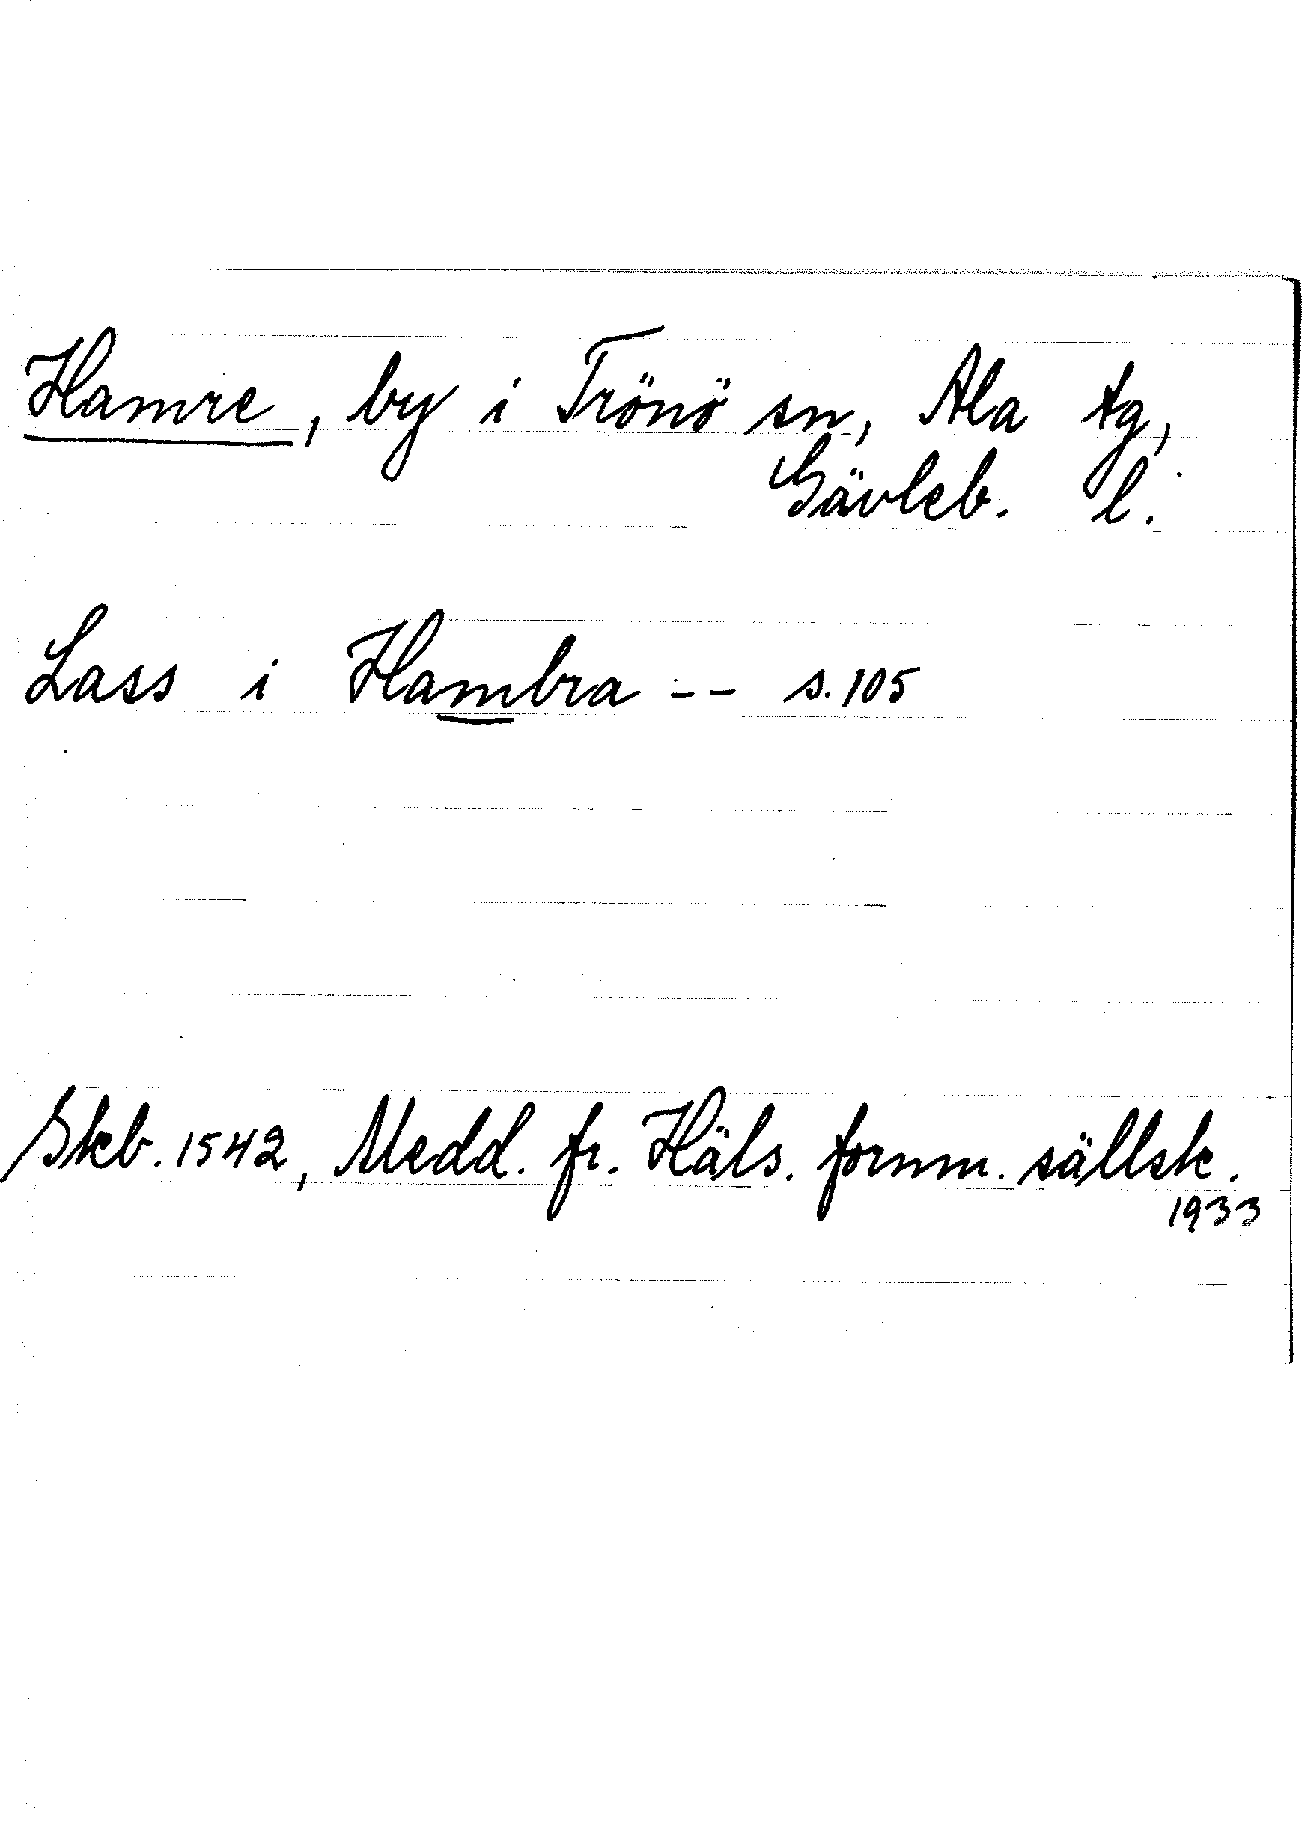 Hamre, by i Trönö sn, Ala tg,
Gävleb. l.
Lass i Hambra -- s. 105
Skb. 1542, Medd. fr. Häls. fornm. sällsk.
1933